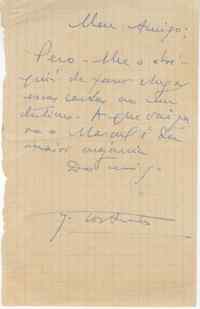 Meu Amigo:
Peço-lhe o obsé-
quio de fazer chegar
essas cartas ao seu
destino. A que vai pa
ra o Manuel é da
maior urgência
Do amigo